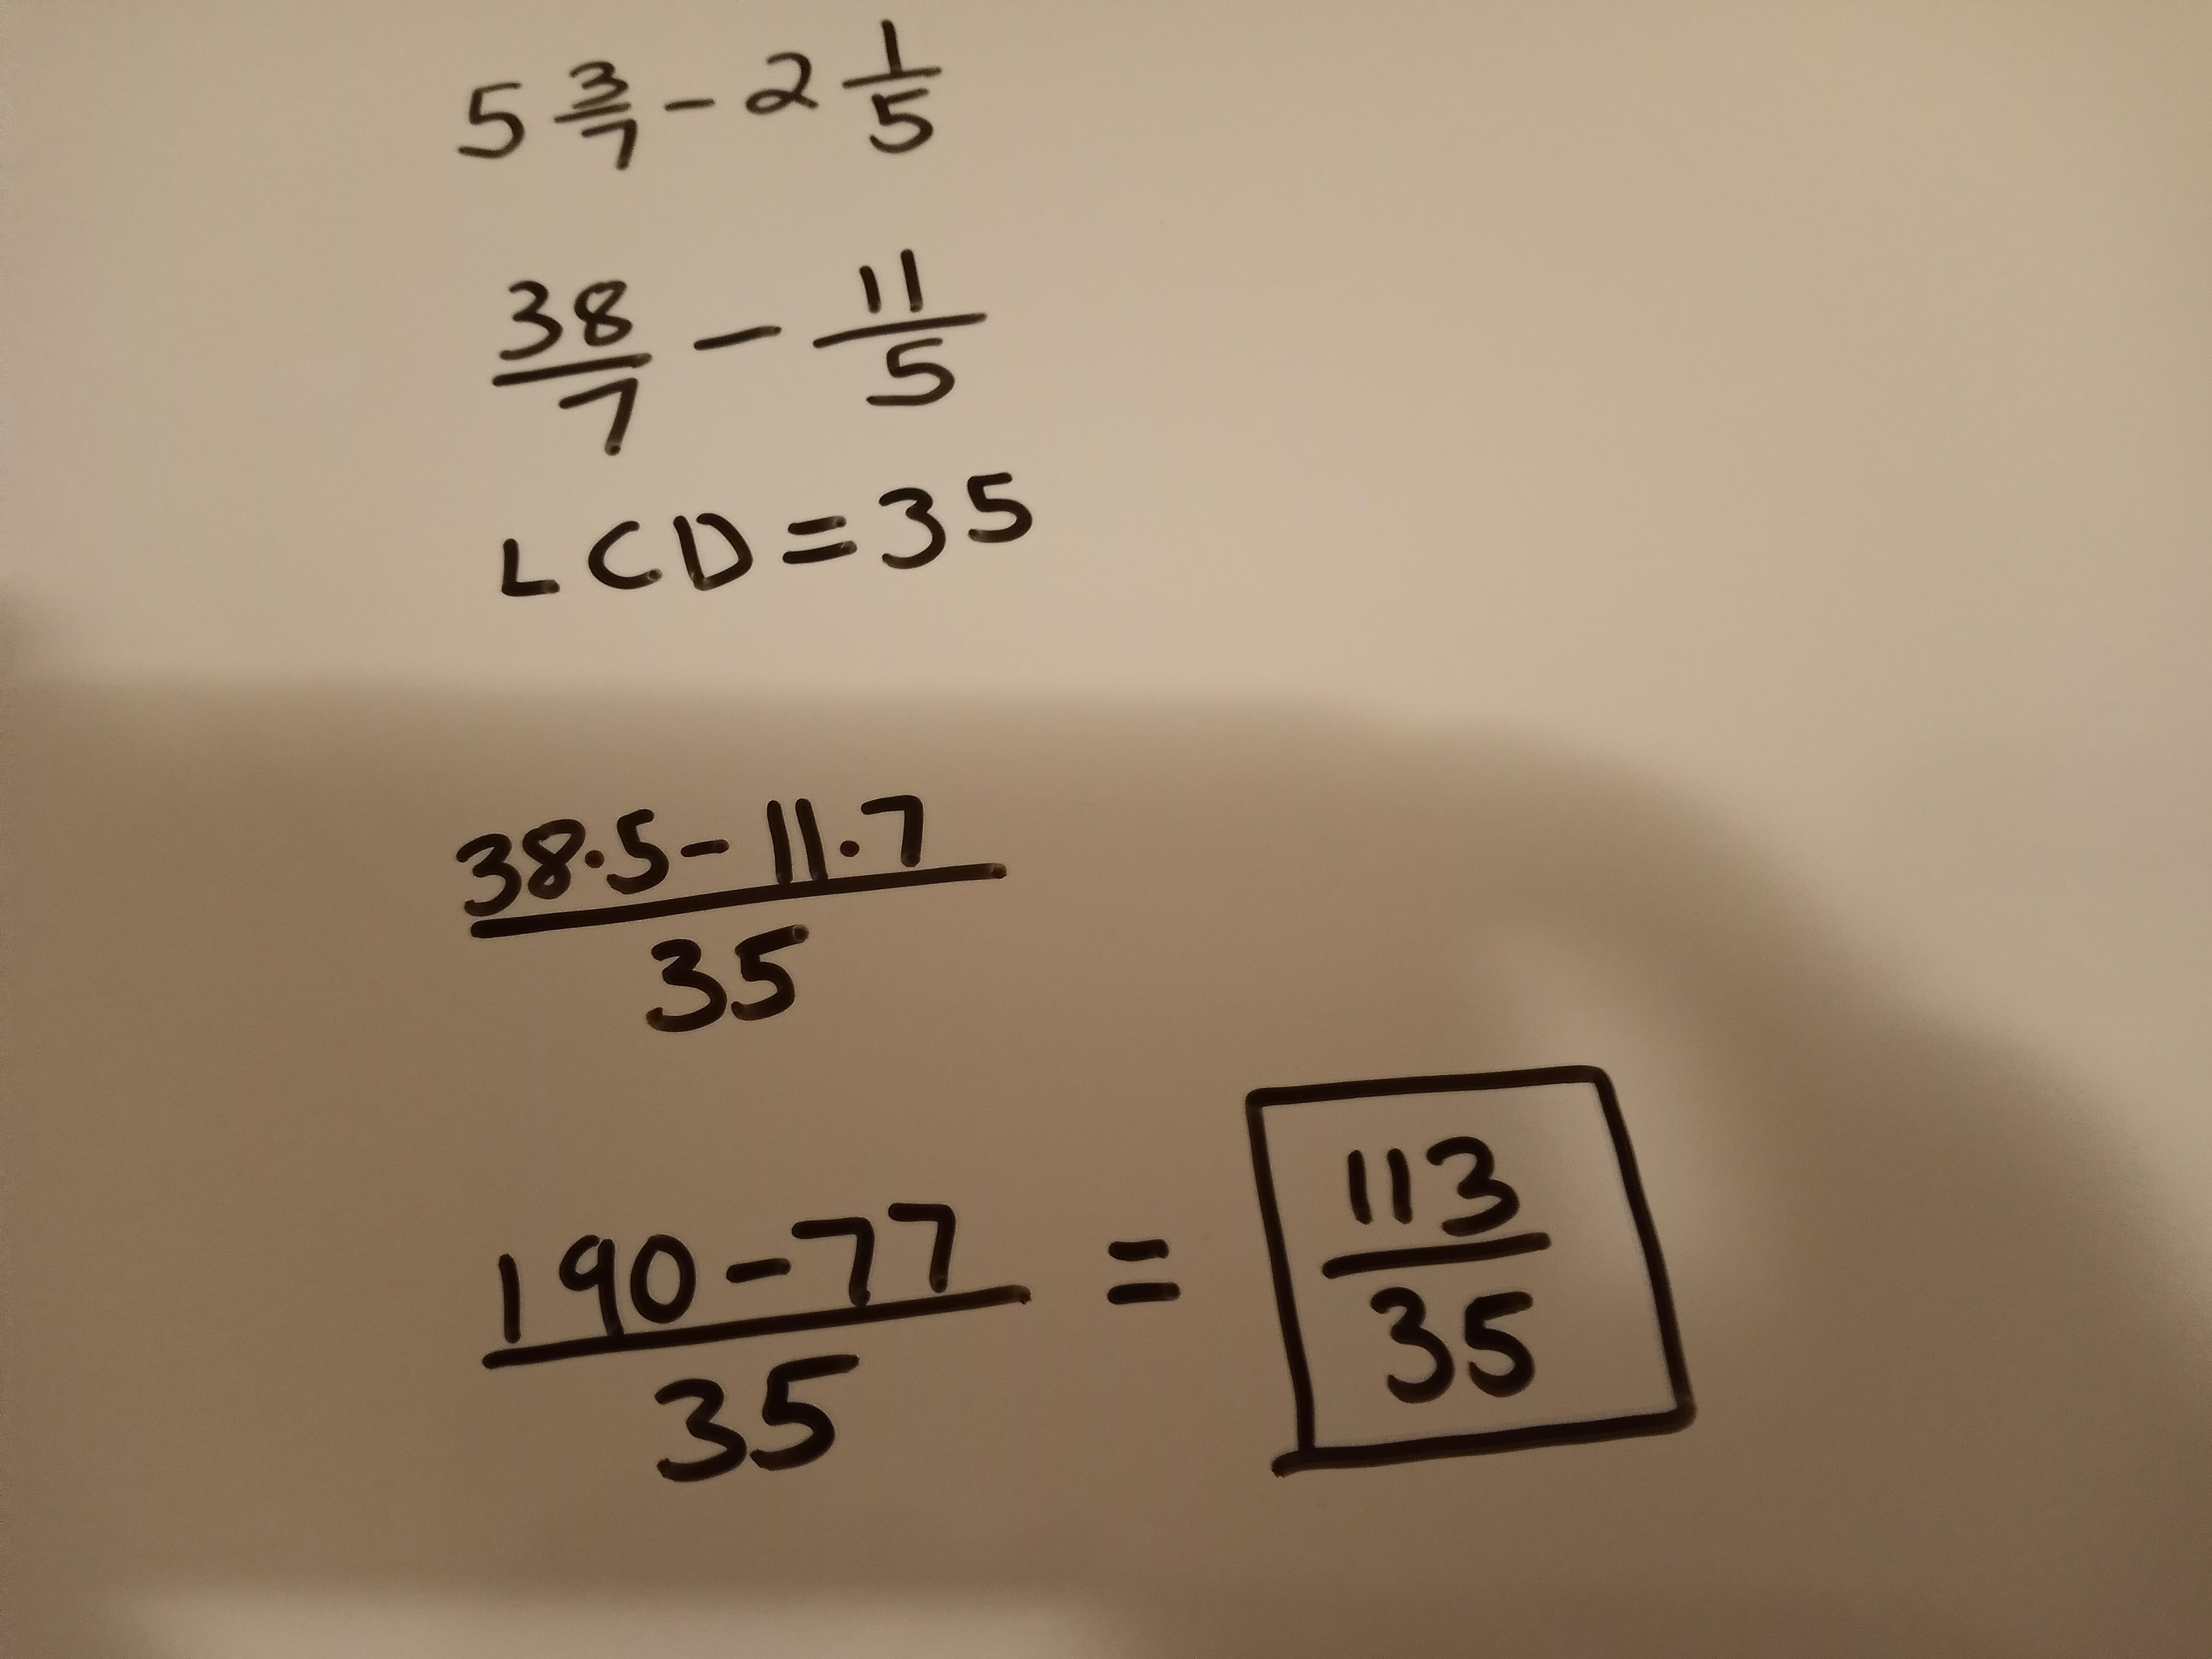 5 3/7 - 2 1/5
38/7 - 11/5
LCD = 35
38·5 - 11·7
35
190 - 77 = 113
35 35